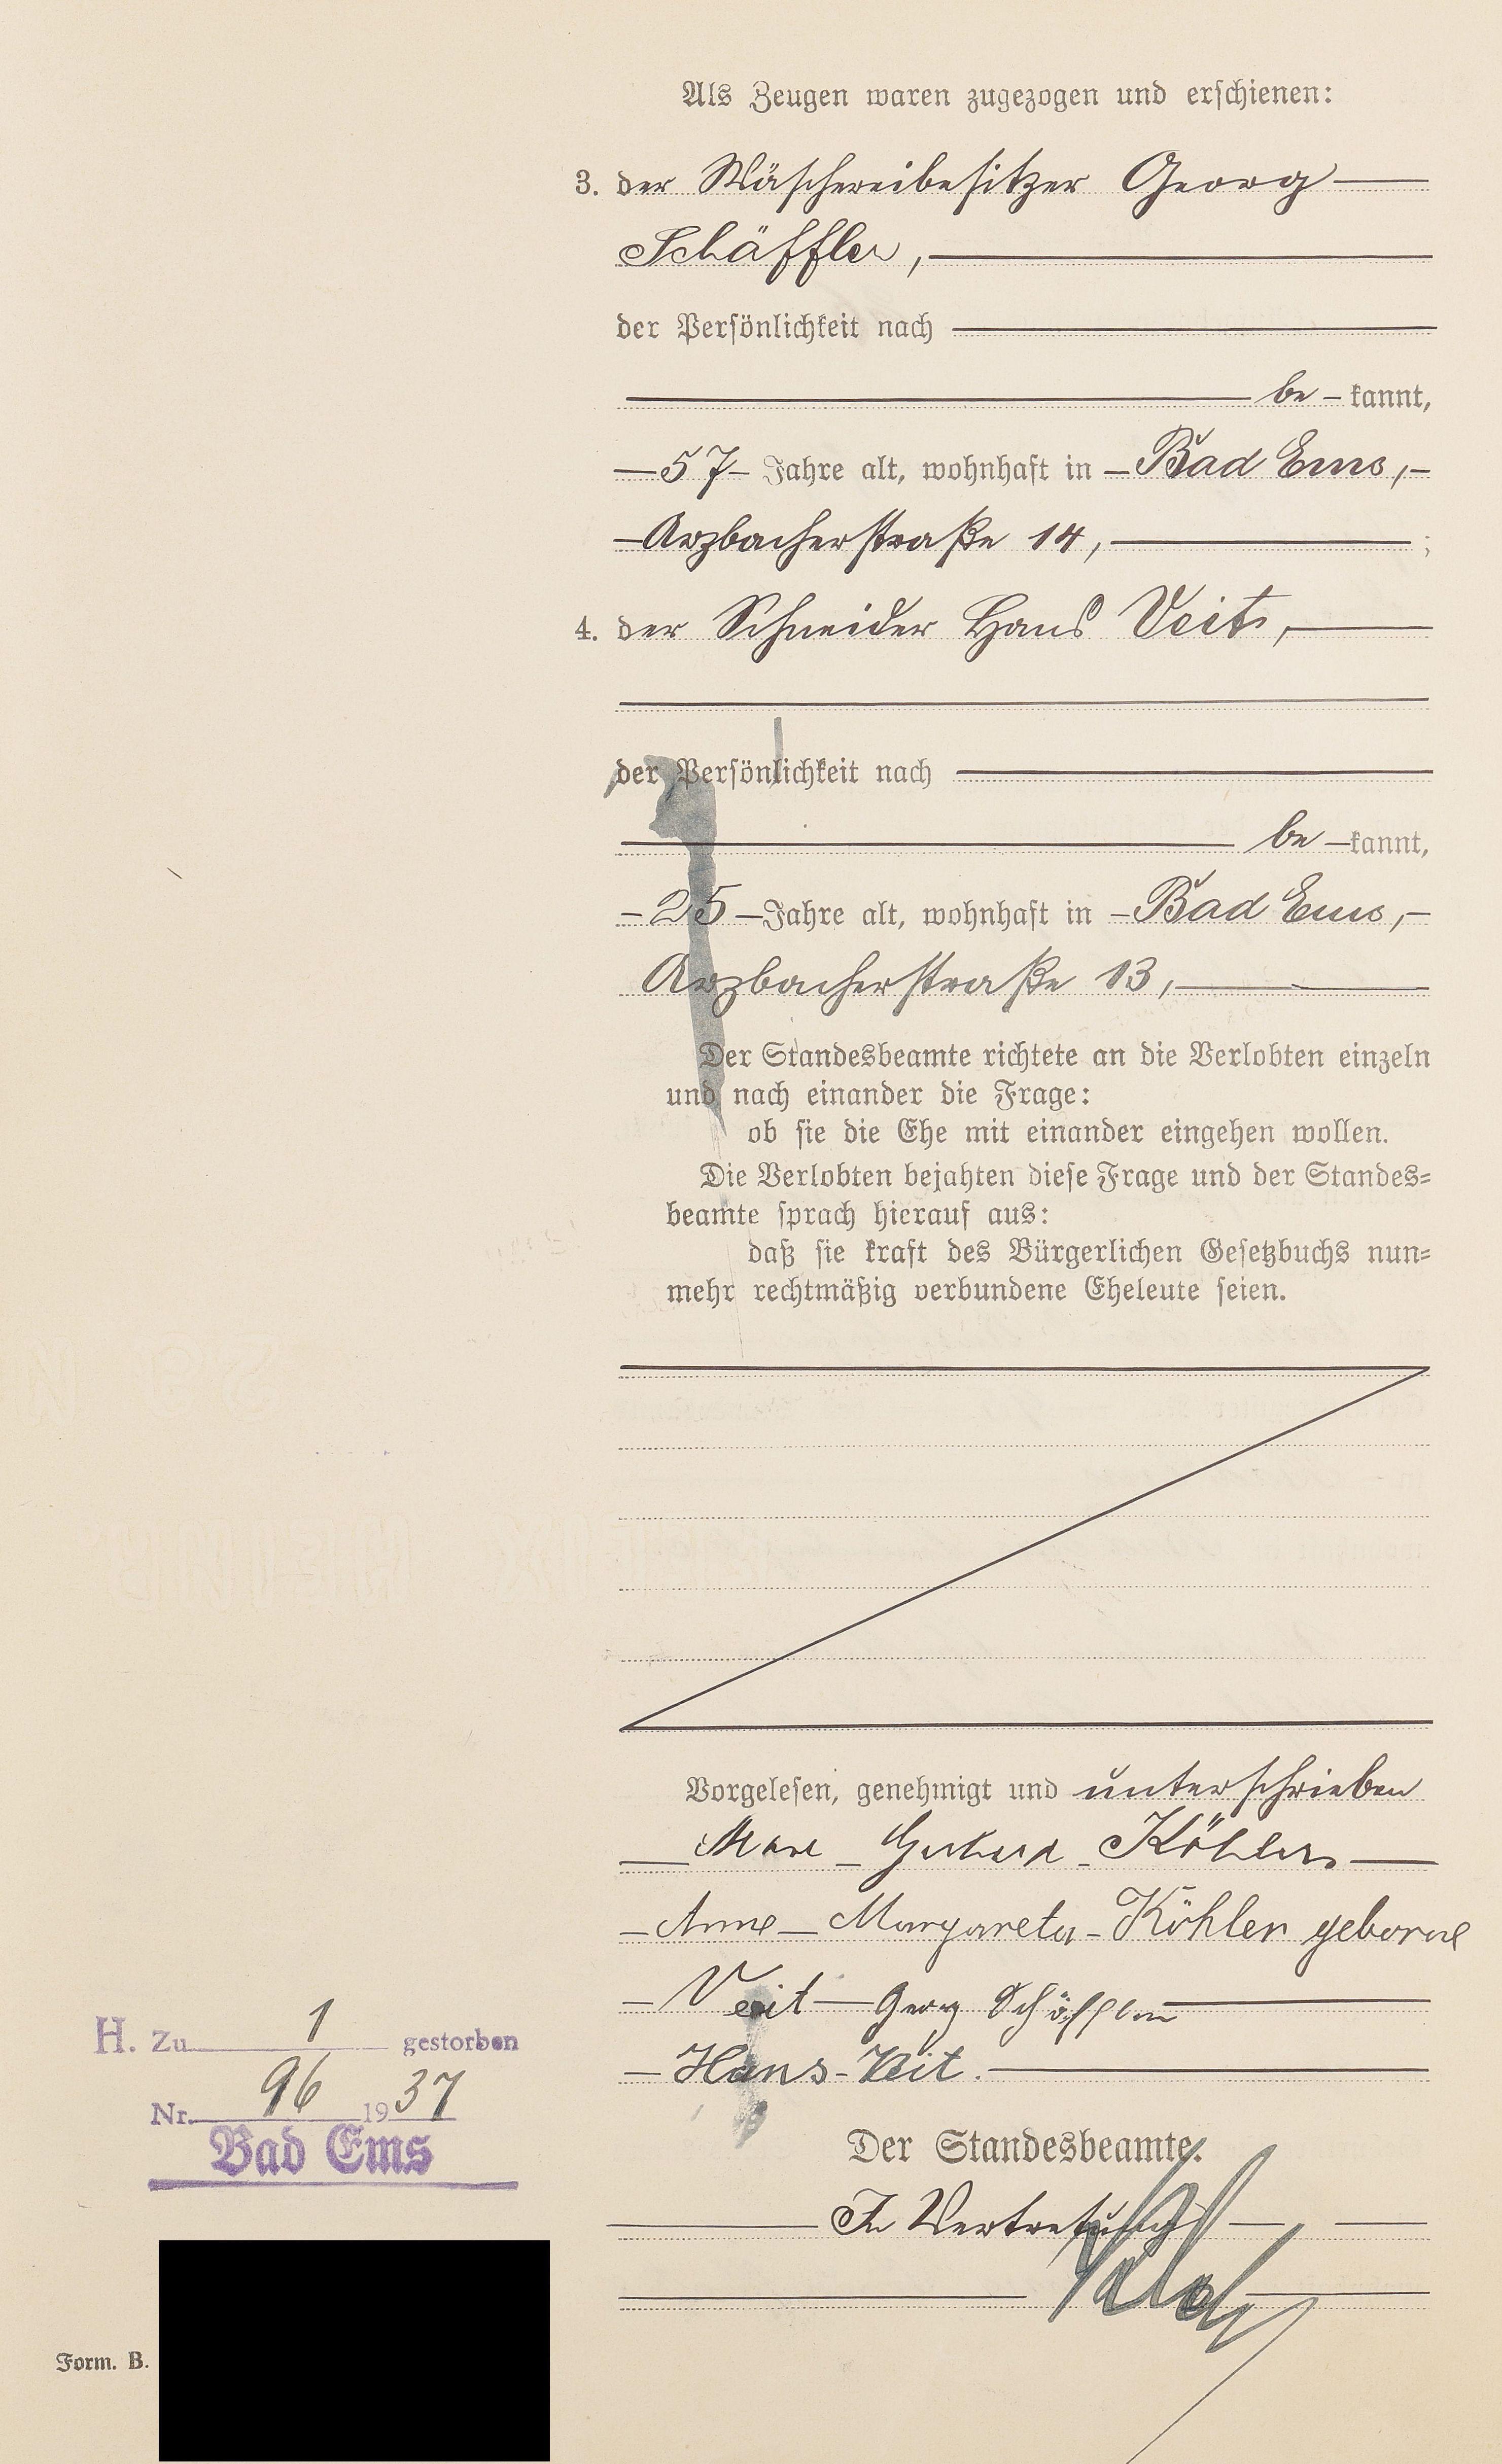 Als Zeugen waren zugezogen und erschienen:
3. der Wäschereibesitzer Georg
Schäffler,
der Persönlichkeit nach
be-kannt,
57 Jahre alt, wohnhaft in Bad Ems,
Arzbacherstraße 14, ;
4. der Schneider Hans Veit,
der Persönlichkeit nach
be-kannt,
25 Jahre alt, wohnhaft in Bad Ems,
Arzbacherstraße 13,
Der Standesbeamte richtete an die Verlobten einzeln
und nach einander die Frage:
ob sie die Ehe mit einander eingehen wollen.
Die Verlobten bejahten diese Frage und der Standes=
beamte sprach hierauf aus:
daß sie kraft des Bürgerlichen Gesetzbuchs nun=
mehr rechtmäßig verbundene Eheleute seien.
Vorgelesen, genehmigt und unterschrieben
Köhler
Anna Margareta Köhler geborne
Veit Georg Schäffler
Hans Veit.
H. Zu 1 gestorben
Nr. 96 1937
Bad Ems
Der Standesbeamte.
In Vertretung
Form. B.